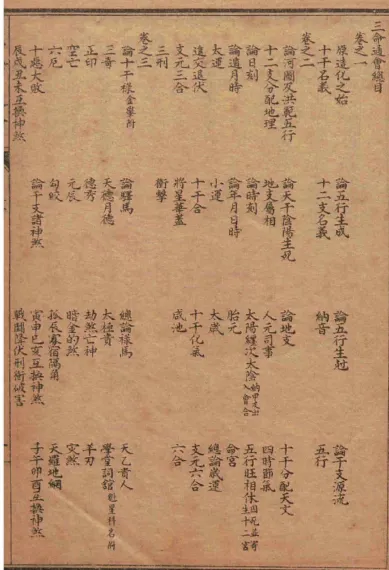 三命通會總目
卷之一
原造化之始　論五行生成　論五行生尅　論干支源流
十干名義　十二支名義　納音　五行
卷之二
論河圖及洪範五行　論天干陰陽生死　論地支　十干分配天文
十二支分配地理　地支屬相　人元司事　四時節氣
論日刻　論時刻　太陽躔次太陰納甲支出入會合　五行旺相休囚死並寄生十二宮
論遁月時　論年月日時　胎元　命宮
大運　小運　太歲　總論歲運
進交退伏　十干合　十干化氣　支元六合
支元三合　將星華蓋　咸池　六合
三刑　衝擊
卷之三
論十干祿金轝附　論驛馬　總論祿馬　天乙貴人
三奇　天德月德　太極貴　學堂詞館魁星科名附
正印　德秀　劫煞亡神　羊刃
空亡　元辰　暗金的煞　災煞
六厄　勾絞　孤辰寡宿隔角　天羅地網
十惡大敗　論干支諸神煞　寅申巳亥互換神煞　子午卯酉互換神煞
辰戌丑未互換神煞　戰鬪降伏刑衝破害